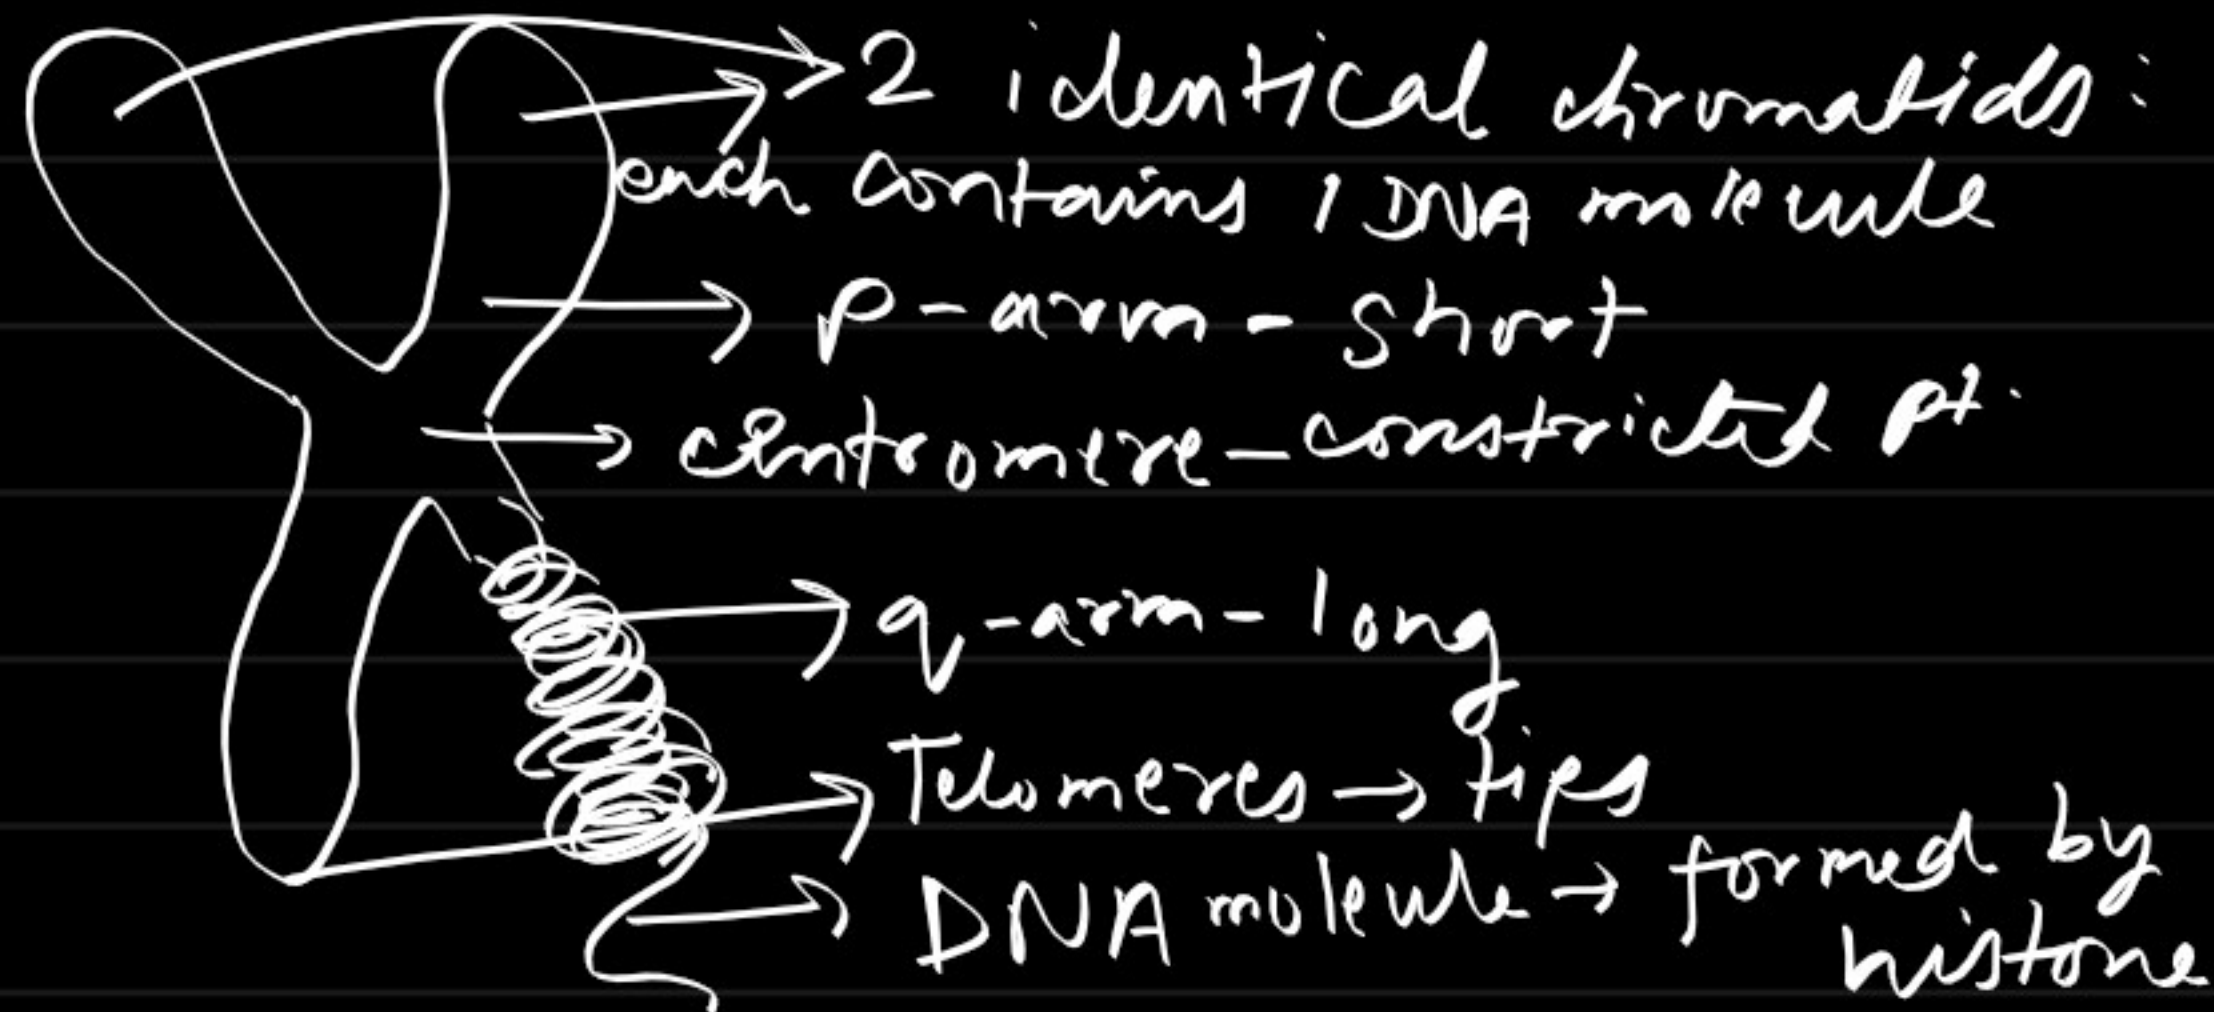 2 identical chromatids:
each contains 1 DNA molecule
p-arm-short
centromere-constricted pt.
q-arm-long
Telomeres→tips
DNA molecule→formed by
histone